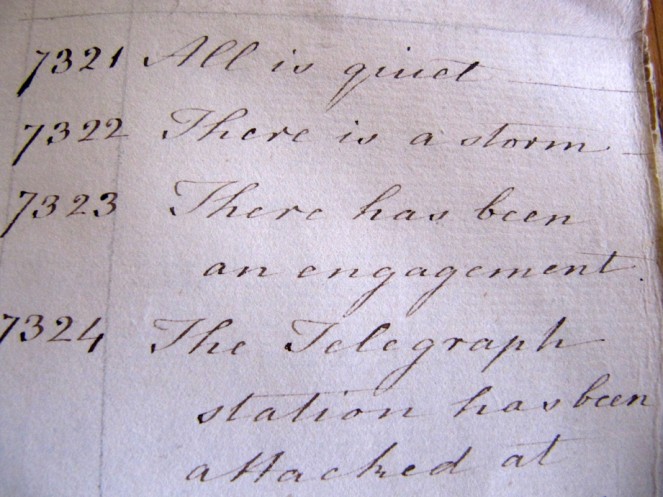 7321 All is qiuet
7322 There is a storm
7323 There has been
an engagement.
7324 The Telegraph
station has been
attacked at